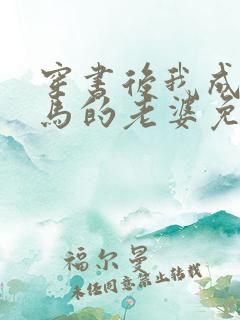 穿书后我成
马的老婆免
福尔曼
未经同意禁止转载